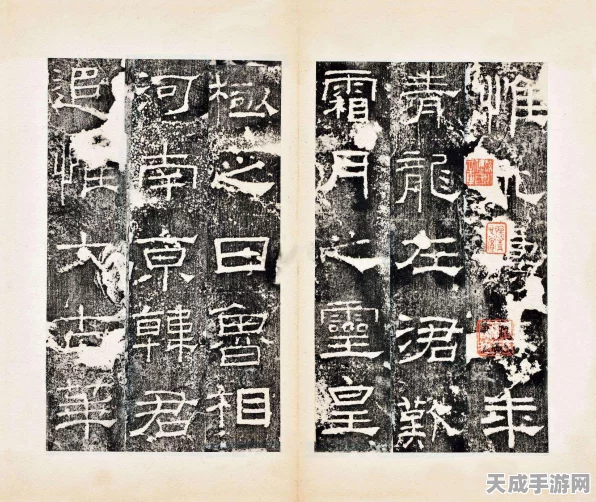 惟永壽年
青龍在涒歎
霜月之靈皇
極之日魯相
河南京韓君
追惟大古華
天成手游网